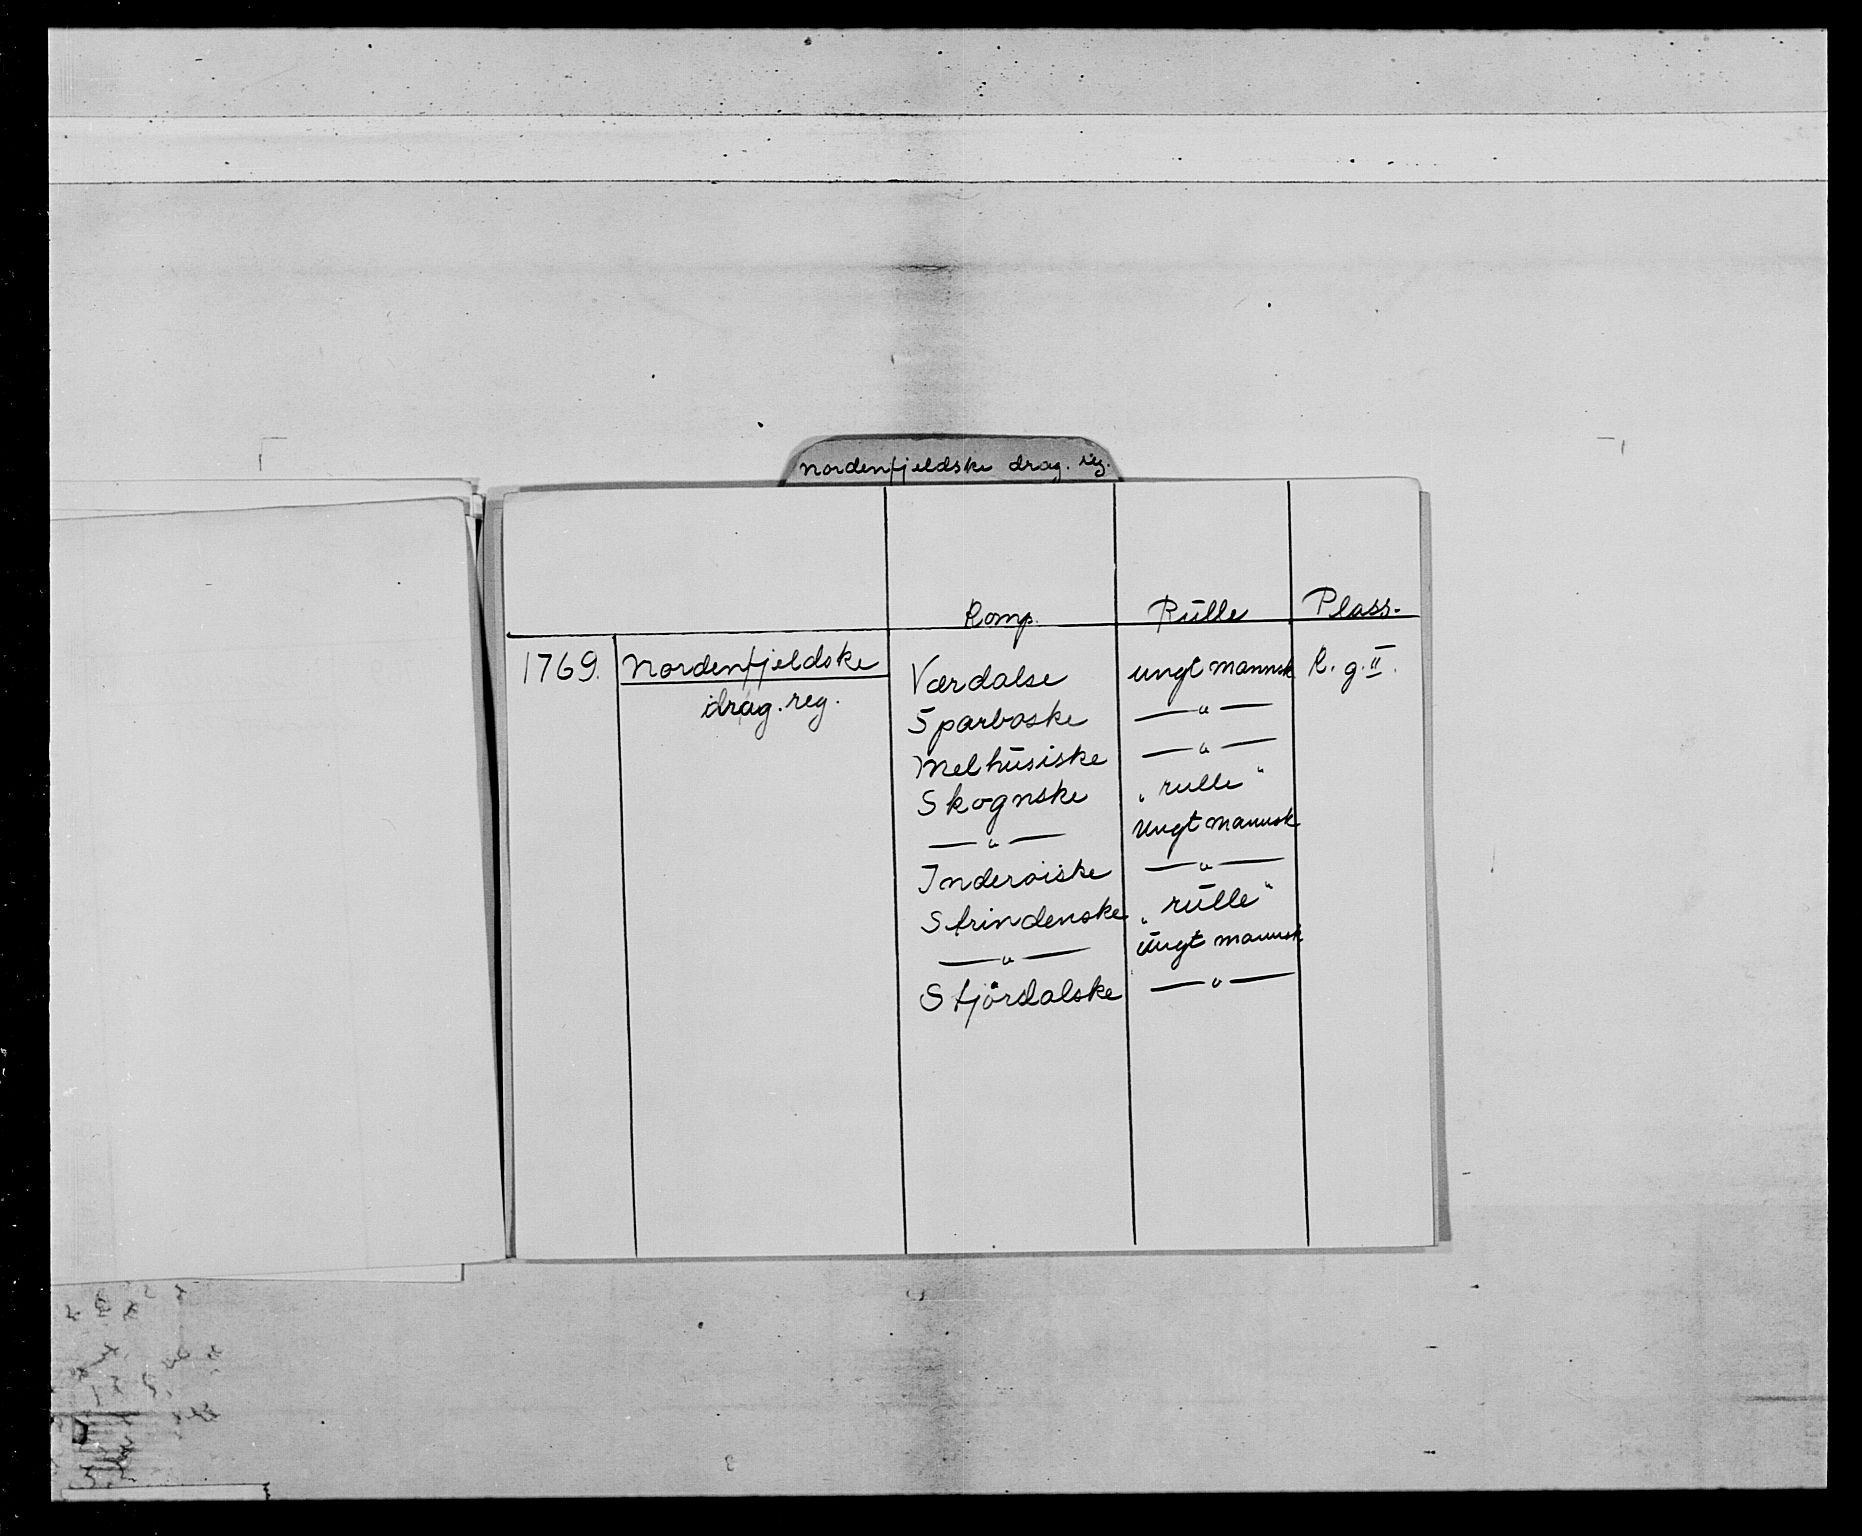 Nordenfjeldske drag. reg.
Komp. Rulle Plass.
1769. Nordenfjeldske Værdalse ungt mannsk R. g. II.
drag. reg. Sparboske — " —
Melhusiske — " —
Skognske " rulle "
— " — Ungt mannsk
Inderøiske — " —
Strindenske " rulle "
— " — Ungt mannsk
Stjørdalske — " —